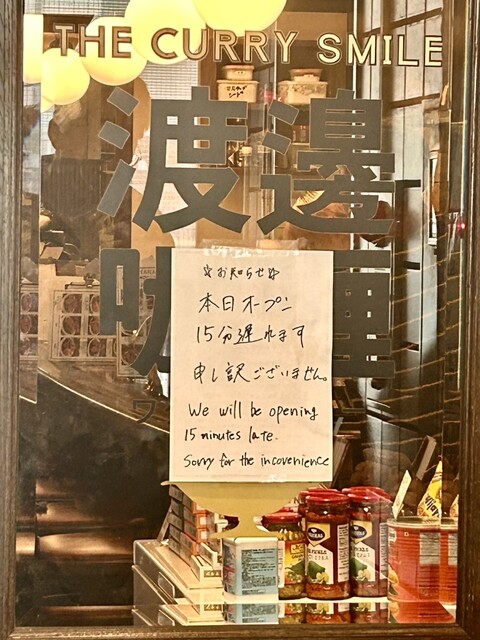 THE CURRY SMILE
渡邊
咖 哩
☆お知らせ☆
本日オープン
15分遅れます
申し訳ございません。
We will be opening
15 minutes late.
Sorry for the incovenience
ワ